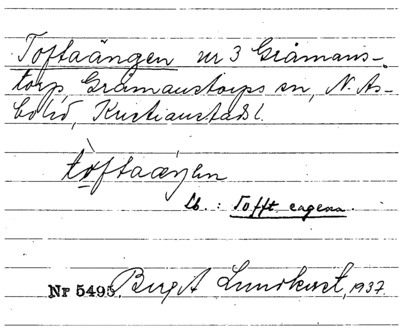 Toftaängen nr 3 Gråmans-
torp, Gråmanstorps sn, N. Ås-
bo hd, Kristianstads l.
tòftaäŋen
Lb. : Tofft engenn.
Nr 5495. Birgit Lundkvist, 1937.